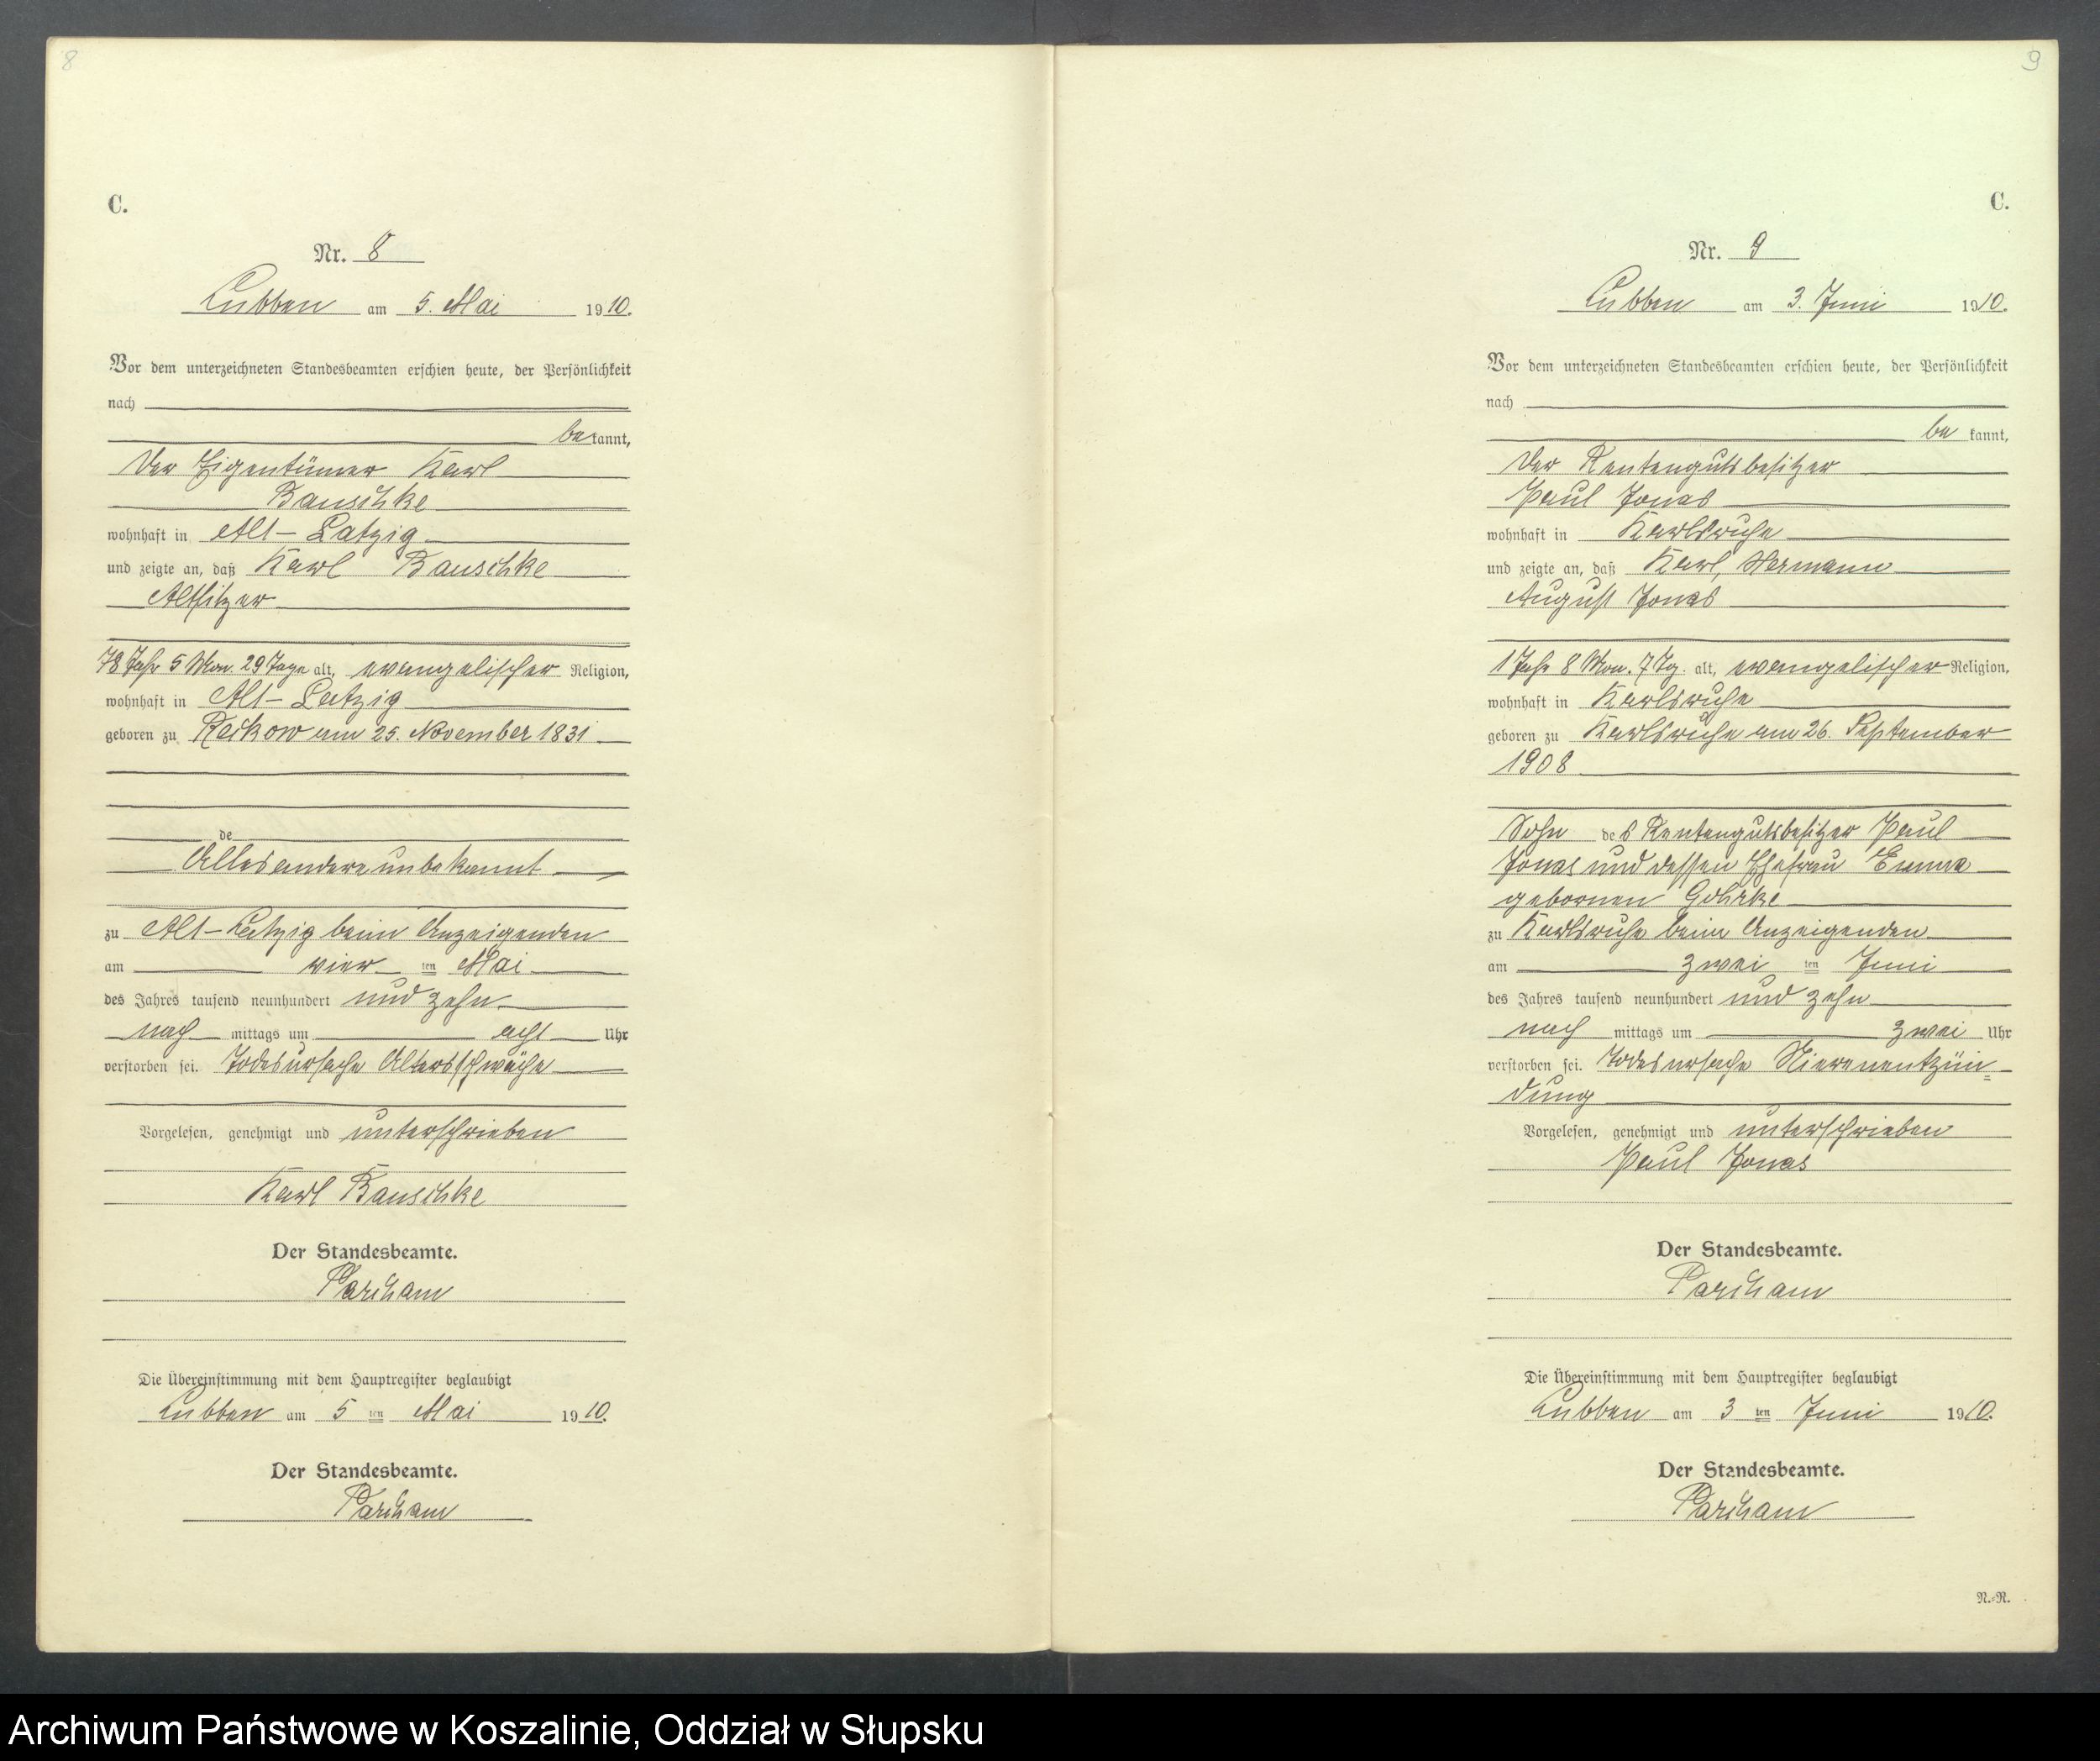 8
C.
Nr. 8
Lubben am 5. Mai 1910.
Vor dem unterzeichneten Standesbeamten erschien heute, der Persönlichkeit
nach
bekannt,
der Eigentümer Karl
Bauschke
wohnhaft in Alt-Latzig
und zeigte an, daß Karl Bauschke
Altsitzer
78 Jahr 5 Mon. 29 Tage alt, evangelischer Religion,
wohnhaft in Alt-Latzig
geboren zu Reikow am 25. November 1831
de
Alles andere unbekannt
zu Alt-Latzig beim Anzeigenden
am vier ten Mai
des Jahres tausend neunhundert und zehn
nach mittags um acht Uhr
verstorben sei. Todesursache Altersschwäche
Vorgelesen, genehmigt und unterschrieben
Karl Bauschke
Der Standesbeamte.
Parcham
Die Übereinstimmung mit dem Hauptregister beglaubigt
Lubben am 5 ten Mai 1910.
Der Standesbeamte.
Parcham
9
C.
Nr. 9
Lubben am 3. Juni 1910.
Vor dem unterzeichneten Standesbeamten erschien heute, der Persönlichkeit
nach
be kannt,
der Rentengutsbesitzer
Paul Jonas
wohnhaft in Karlsruhe
und zeigte an, daß Karl, Hermann
August Jonas
1 Jahr 8 Mon. 7 Tg. alt, evangelischer Religion,
wohnhaft in Karlsruhe
geboren zu Karlsruhe am 26. September
1908
Sohn des Rentengutsbesitzer Paul
Jonas und dessen Ehefrau Emma
gebornen Gohrke
zu Karlsruhe beim Anzeigenden
am zwei ten Juni
des Jahres tausend neunhundert und zehn
nach mittags um zwei Uhr
verstorben sei. Todesursache Nierenentzün=
dung
Vorgelesen, genehmigt und unterschrieben
Paul Jonas
Der Standesbeamte.
Parcham
Die Übereinstimmung mit dem Hauptregister beglaubigt
Lubben am 3 ten Juni 1910.
Der Standesbeamte.
Parcham
N.-R.
Archiwum Państwowe w Koszalinie, Oddział w Słupsku